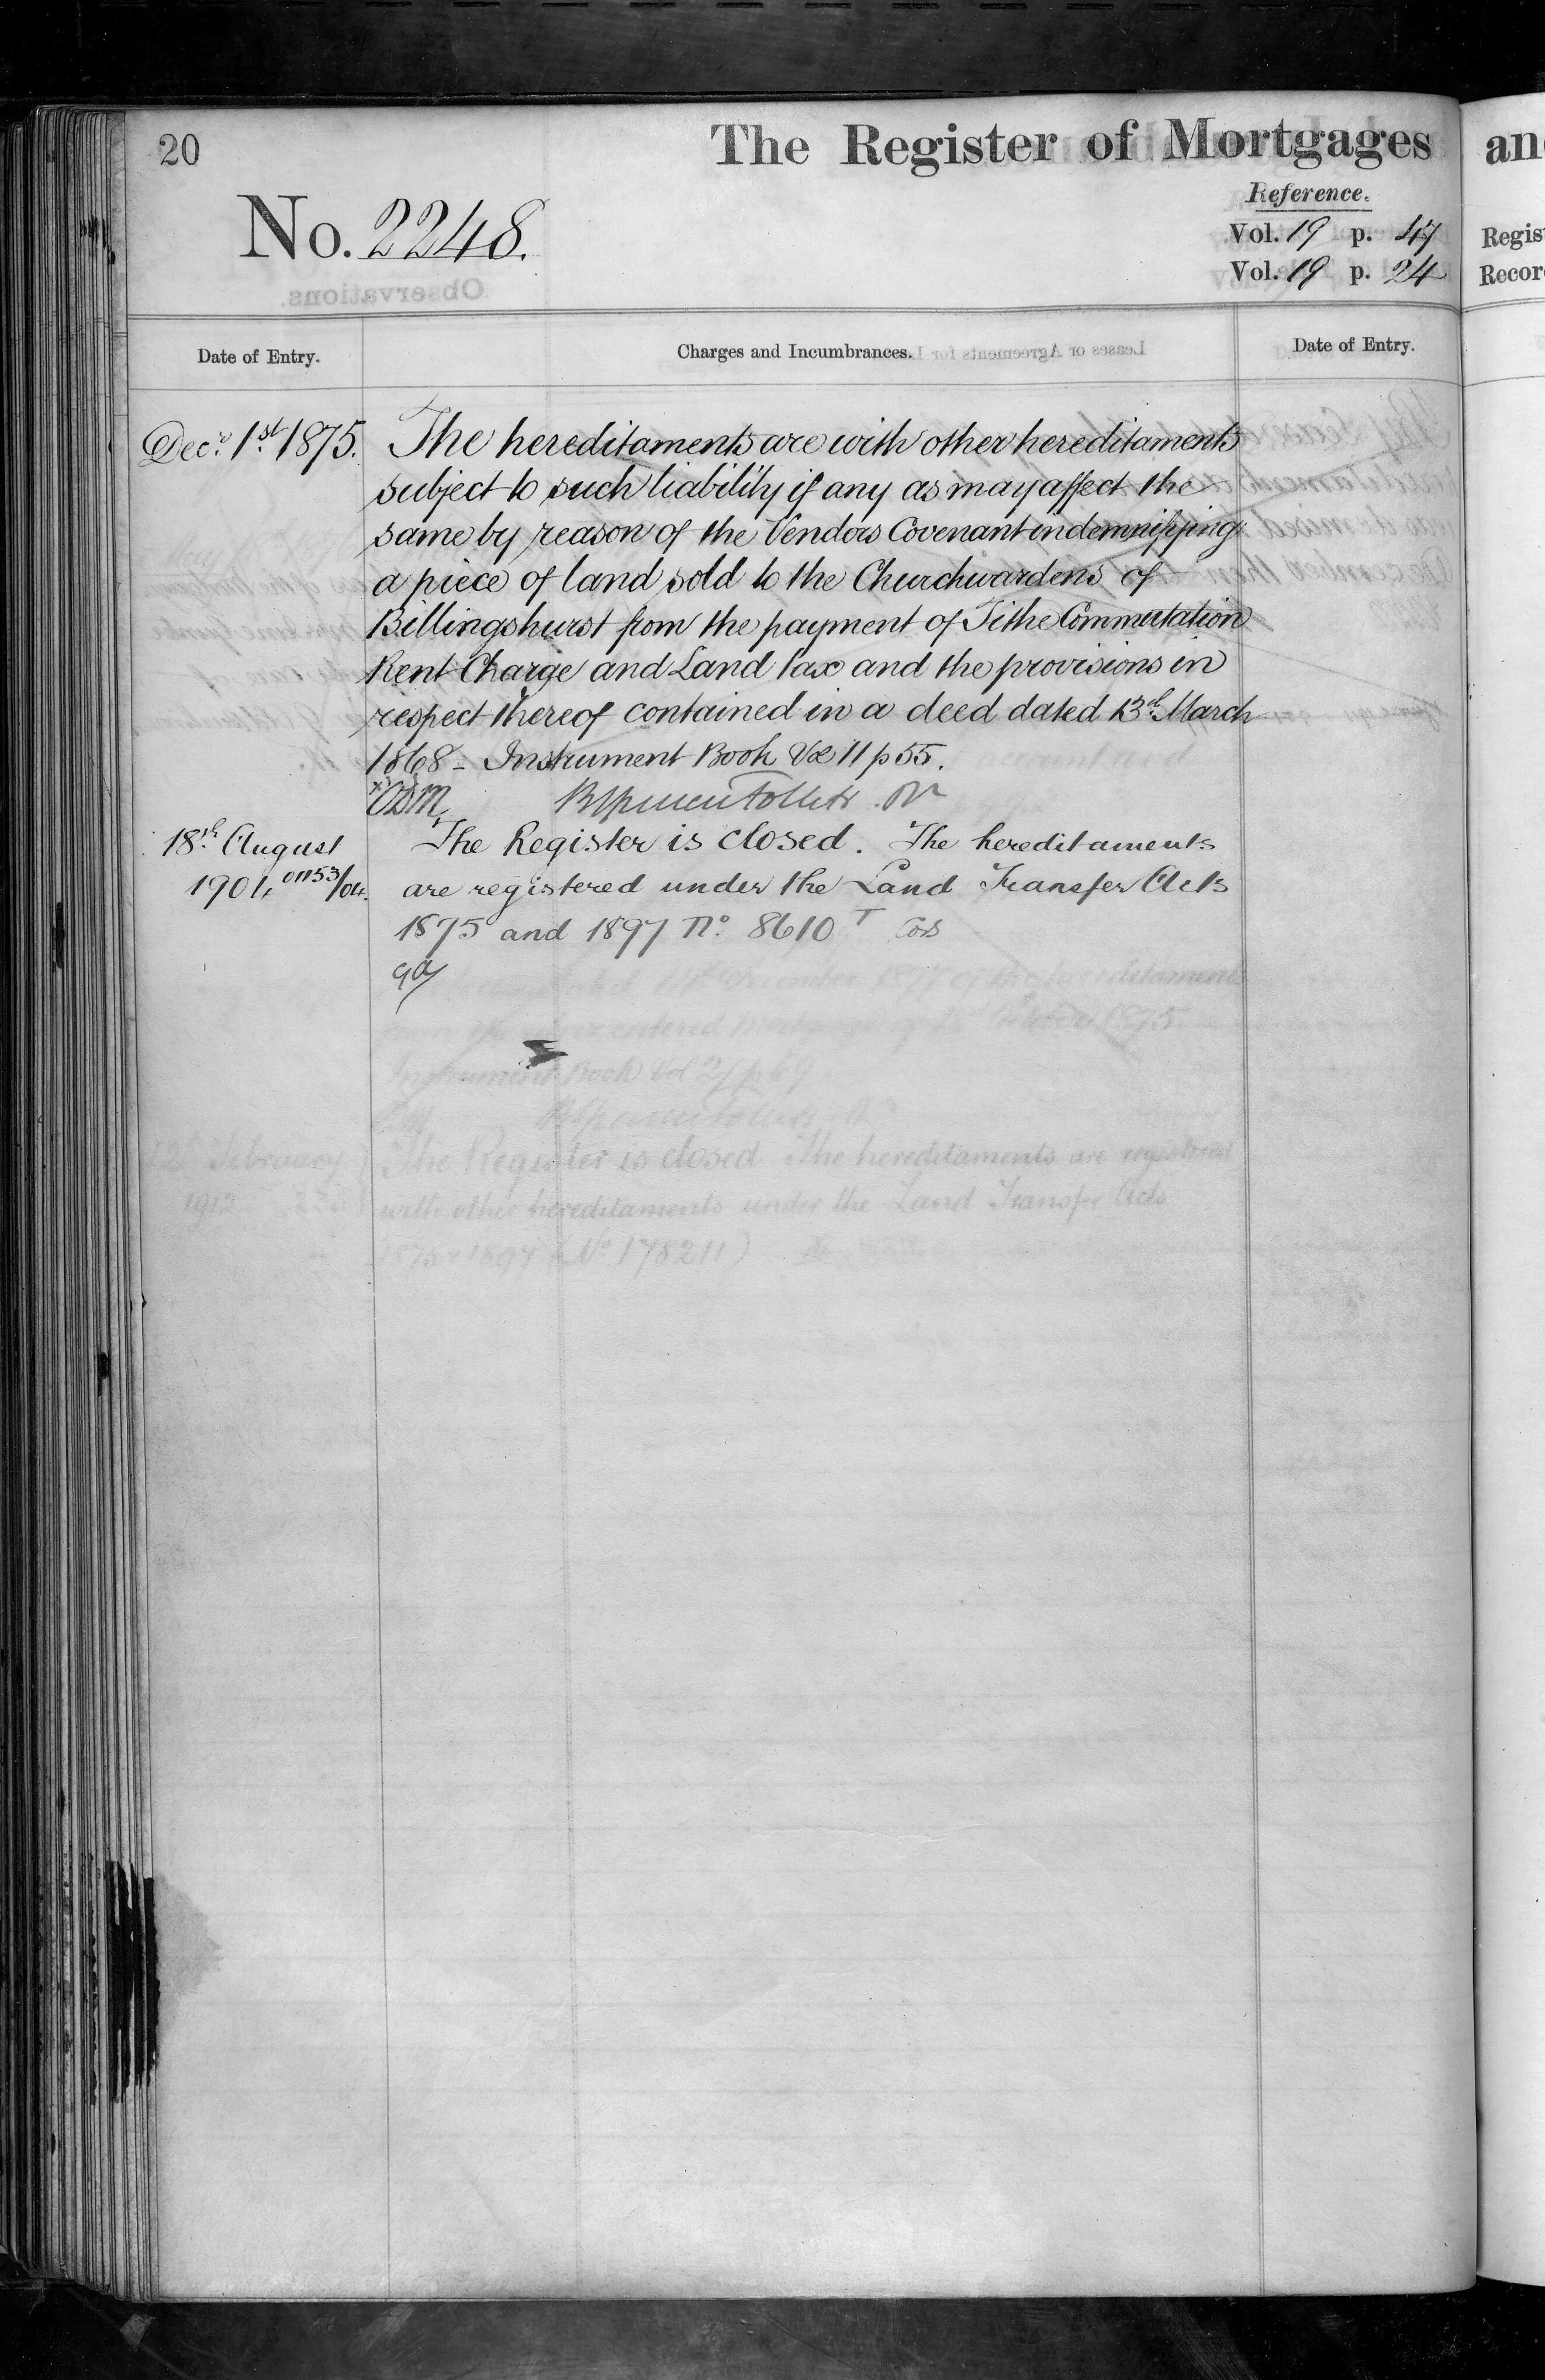 20
The Register of Mortgages
an
Reference.
No. 2248.
Vol. 19 p. 47
Regis
Vol. 19 p. 24
Recor
Date of Entry.
Charges and Incumbrances.
Date of Entry.
Decr. 1st 1875.
The hereditaments are with other hereditaments
subject to such liability if any as may affect the
same by reason of the Vendors Covenant indemnifying
a piece of land sold to the Churchwardens of
Billingshurst from the payment of Tithe Commutation
Rent Charge and Land Tax and the provisions in
respect thereof contained in a deed dated 13th March
1868 - Instrument Book Vol 11 p 55.
18th August
The Register is closed. The hereditaments
1904
are registered under the Land Transfer Acts
1875 and 1897 No. 8610
February
The Register is closed The hereditaments are registered
1912
with other hereditaments under the Land Transfer Acts
No 178211)